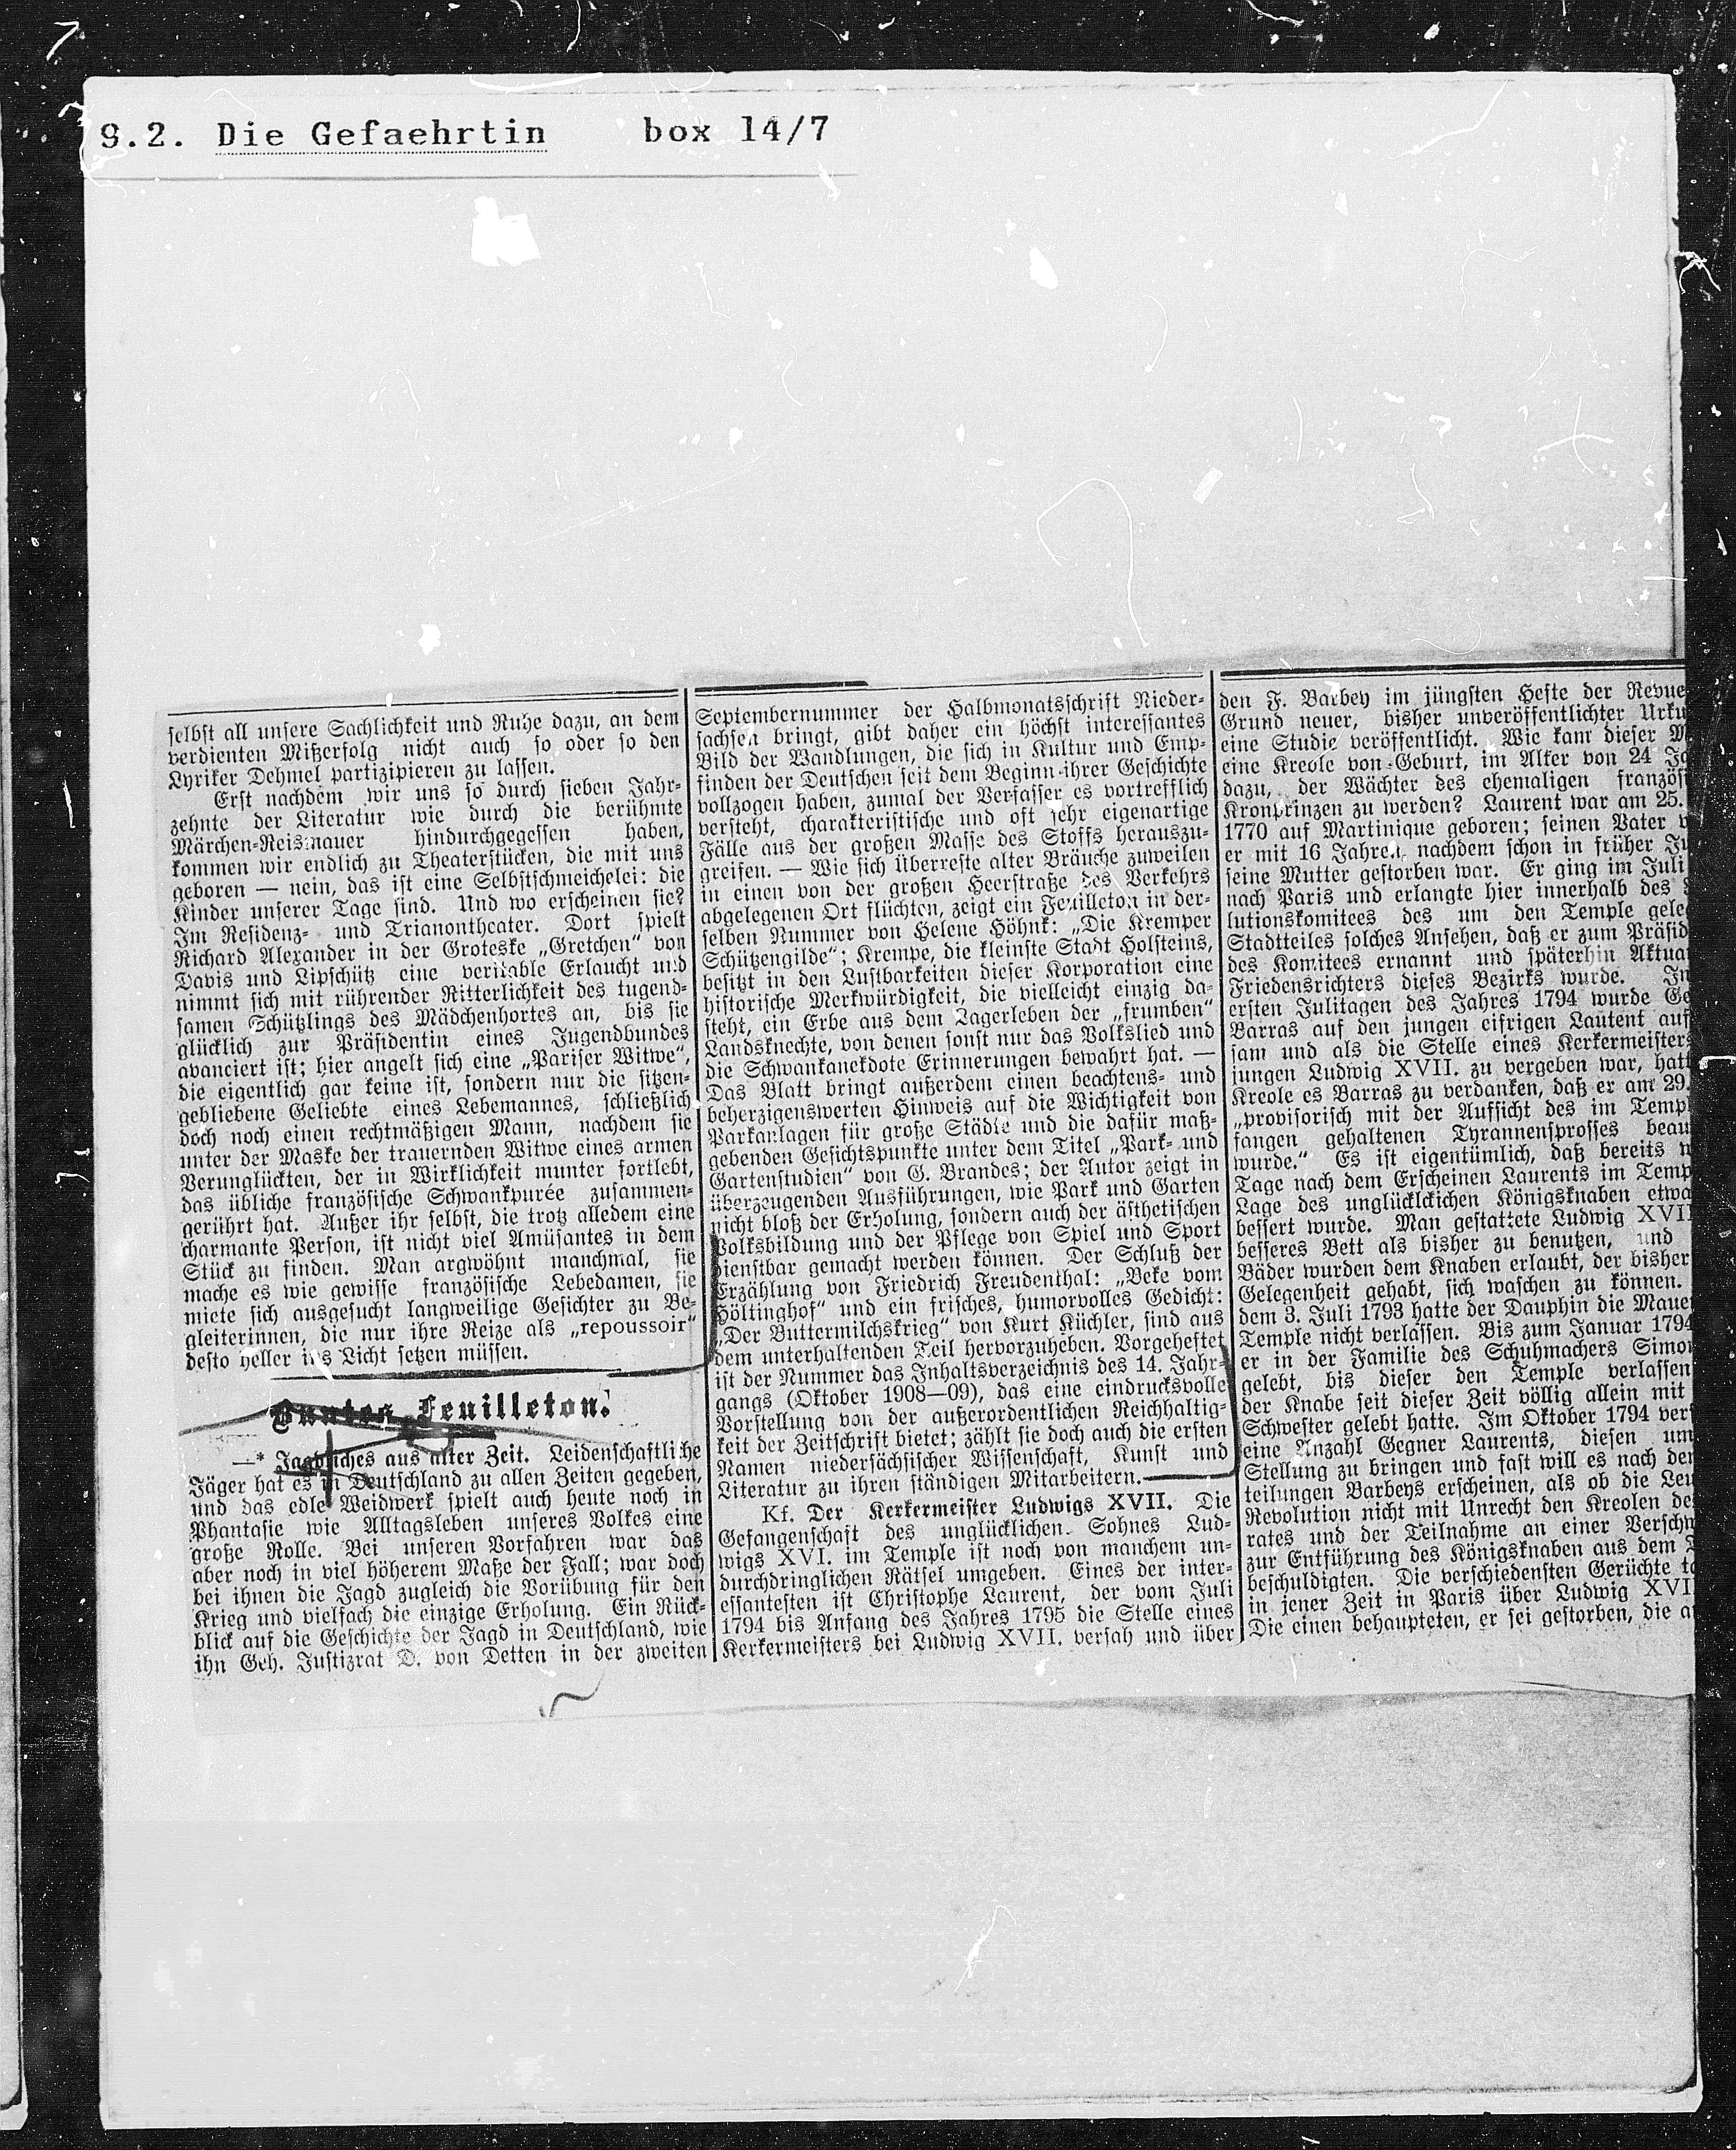 9.2. Die Gefaehrtin box 14/7
selbst all unsere Sachlichkeit und Ruhe dazu, an dem
verdienten Mißerfolg nicht auch so oder so den
Lyriker Dehmel partizipieren zu lassen.
Erst nachdem wir uns so durch sieben Jahr-
zehnte der Literatur wie durch die berühmte
Märchen-Reismauer hindurchgegessen haben,
kommen wir endlich zu Theaterstücken, die mit uns
geboren — nein, das ist eine Selbstschmeichelei: die
Kinder unserer Tage sind. Und wo erscheinen sie?
Im Residenz- und Trianontheater. Dort spielt
Richard Alexander in der Groteske „Gretchen“ von
Davis und Lipschütz eine veritable Erlaucht und
nimmt sich mit rührender Ritterlichkeit des tugend-
samen Schützlings des Mädchenhortes an, bis sie
glücklich zur Präsidentin eines Jugendbundes
avanciert ist; hier angelt sich eine „Pariser Witwe“,
die eigentlich gar keine ist, sondern nur die sitzen-
gebliebene Geliebte eines Lebemannes, schließlich
doch noch einen rechtmäßigen Mann, nachdem sie
unter der Maske der trauernden Witwe eines armen
Verunglückten, der in Wirklichkeit munter fortlebt,
das übliche französische Schwankpurée zusammen-
gerührt hat. Außer ihr selbst, die trotz alledem eine
charmante Person, ist nicht viel Amüsantes in dem
Stück zu finden. Man argwöhnt manchmal, sie
mache es wie gewisse französische Lebedamen, sie
miete sich ausgesucht langweilige Gesichter zu Be-
gleiterinnen, die nur ihre Reize als „repoussoir“
desto heller ins Licht setzen müssen.
Buntes Feuilleton.
—* Jagdliches aus alter Zeit. Leidenschaftliche
Jäger hat es in Deutschland zu allen Zeiten gegeben,
und das edle Weidwerk spielt auch heute noch in
Phantasie wie Alltagsleben unseres Volkes eine
große Rolle. Bei unseren Vorfahren war das
aber noch in viel höherem Maße der Fall; war doch
bei ihnen die Jagd zugleich die Vorübung für den
Krieg und vielfach die einzige Erholung. Ein Rück-
blick auf die Geschichte der Jagd in Deutschland, wie
ihn Geh. Justizrat D. von Detten in der zweiten
Septembernummer der Halbmonatsschrift Nieder-
sachsen bringt, gibt daher ein höchst interessantes
Bild der Wandlungen, die sich in Kultur und Emp-
finden der Deutschen seit dem Beginn ihrer Geschichte
vollzogen haben, zumal der Verfasser es vortrefflich
versteht, charakteristische und oft sehr eigenartige
Fälle aus der großen Masse des Stoffs herauszu-
greifen. — Wie sich überreste alter Bräuche zuweilen
in einen von der großen Heerstraße des Verkehrs
abgelegenen Ort flüchten, zeigt ein Feuilleton in der-
selben Nummer von Helene Höhnk: „Die Kremper
Schützengilde“; Krempe, die kleinste Stadt Holsteins,
besitzt in den Lustbarkeiten dieser Korporation eine
historische Merkwürdigkeit, die vielleicht einzig da-
steht, ein Erbe aus dem Lagerleben der „frumben“
Landsknechte, von denen sonst nur das Volkslied und
die Schwankanekdote Erinnerungen bewahrt hat. —
Das Blatt bringt außerdem einen beachtens- und
beherzigenswerten Hinweis auf die Wichtigkeit von
Parkanlagen für große Städte und die dafür maß-
gebenden Gesichtspunkte unter dem Titel „Park- und
Gartenstudien“ von G. Brandes; der Autor zeigt in
überzeugenden Ausführungen, wie Park und Garten
nicht bloß der Erholung, sondern auch der ästhetischen
Volksbildung und der Pflege von Spiel und Sport
dienstbar gemacht werden können. Der Schluß der
Erzählung von Friedrich Freudenthal: „Beke vom
Höltinghof“ und ein frisches, humorvolles Gedicht:
„Der Buttermilchskrieg“ von Kurt Küchler, sind aus
dem unterhaltenden Teil hervorzuheben. Vorgeheftet
ist der Nummer das Inhaltsverzeichnis des 14. Jahr-
gangs (Oktober 1908—09), das eine eindrucksvolle
Vorstellung von der außerordentlichen Reichhaltig-
keit der Zeitschrift bietet; zählt sie doch auch die ersten
Namen niedersächsischer Wissenschaft, Kunst und
Literatur zu ihren ständigen Mitarbeitern.
Kf. Der Kerkermeister Ludwigs XVII. Die
Gefangenschaft des unglücklichen Sohnes Lud-
wigs XVI. im Temple ist noch von manchem un-
durchdringlichen Rätsel umgeben. Eines der inter-
essantesten ist Christophe Laurent, der vom Juli
1794 bis Anfang des Jahres 1795 die Stelle eines
Kerkermeisters bei Ludwig XVII. versah und über
den F. Barbey im jüngsten Hefte der Revue
Grund neuer, bisher unveröffentlichter Urku
eine Studie veröffentlicht. Wie kam dieser M
eine Kreole von Geburt, im Alter von 24 Ja
dazu, der Wächter des ehemaligen französi
Kronprinzen zu werden? Laurent war am 25.
1770 auf Martinique geboren; seinen Vater v
er mit 16 Jahren, nachdem schon in früher Ju
seine Mutter gestorben war. Er ging im Juli
nach Paris und erlangte hier innerhalb des
lutionskomitees des um den Temple gele
Stadtteiles solches Ansehen, daß er zum Präsid
des Komitees ernannt und späterhin Aktuar
Friedensrichters dieses Bezirks wurde. In
ersten Julitagen des Jahres 1794 wurde Ge
Barras auf den jungen eifrigen Lautent auf
sam und als die Stelle eines Kerkermeisters
jungen Ludwig XVII. zu vergeben war, hatt
Kreole es Barras zu verdanken, daß er am 29.
„provisorisch mit der Aufsicht des im Temp
fangen gehaltenen Tyrannensprosses beau
wurde.“ Es ist eigentümlich, daß bereits w
Tage nach dem Erscheinen Laurents im Temp
Lage des unglücklckichen Königsknaben etwa
bessert wurde. Man gestattete Ludwig XVII
besseres Bett als bisher zu benutzen, und
Bäder wurden dem Knaben erlaubt, der bisher
Gelegenheit gehabt, sich waschen zu können.
dem 3. Juli 1793 hatte der Dauphin die Mauer
Temple nicht verlassen. Bis zum Januar 1794
er in der Familie des Schuhmachers Simon
gelebt, bis dieser den Temple verlassen
der Knabe seit dieser Zeit völlig allein mit
Schwester gelebt hatte. Im Oktober 1794 vers
eine Anzahl Gegner Laurents, diesen um
Stellung zu bringen und fast will es nach den
teilungen Barbeys erscheinen, als ob die Leu
Revolution nicht mit Unrecht den Kreolen de
rates und der Teilnahme an einer Verschw
zur Entführung des Königsknaben aus dem T
beschuldigten. Die verschiedensten Gerüchte ta
in jener Zeit in Paris über Ludwig XVI
Die einen behaupteten, er sei gestorben, die a